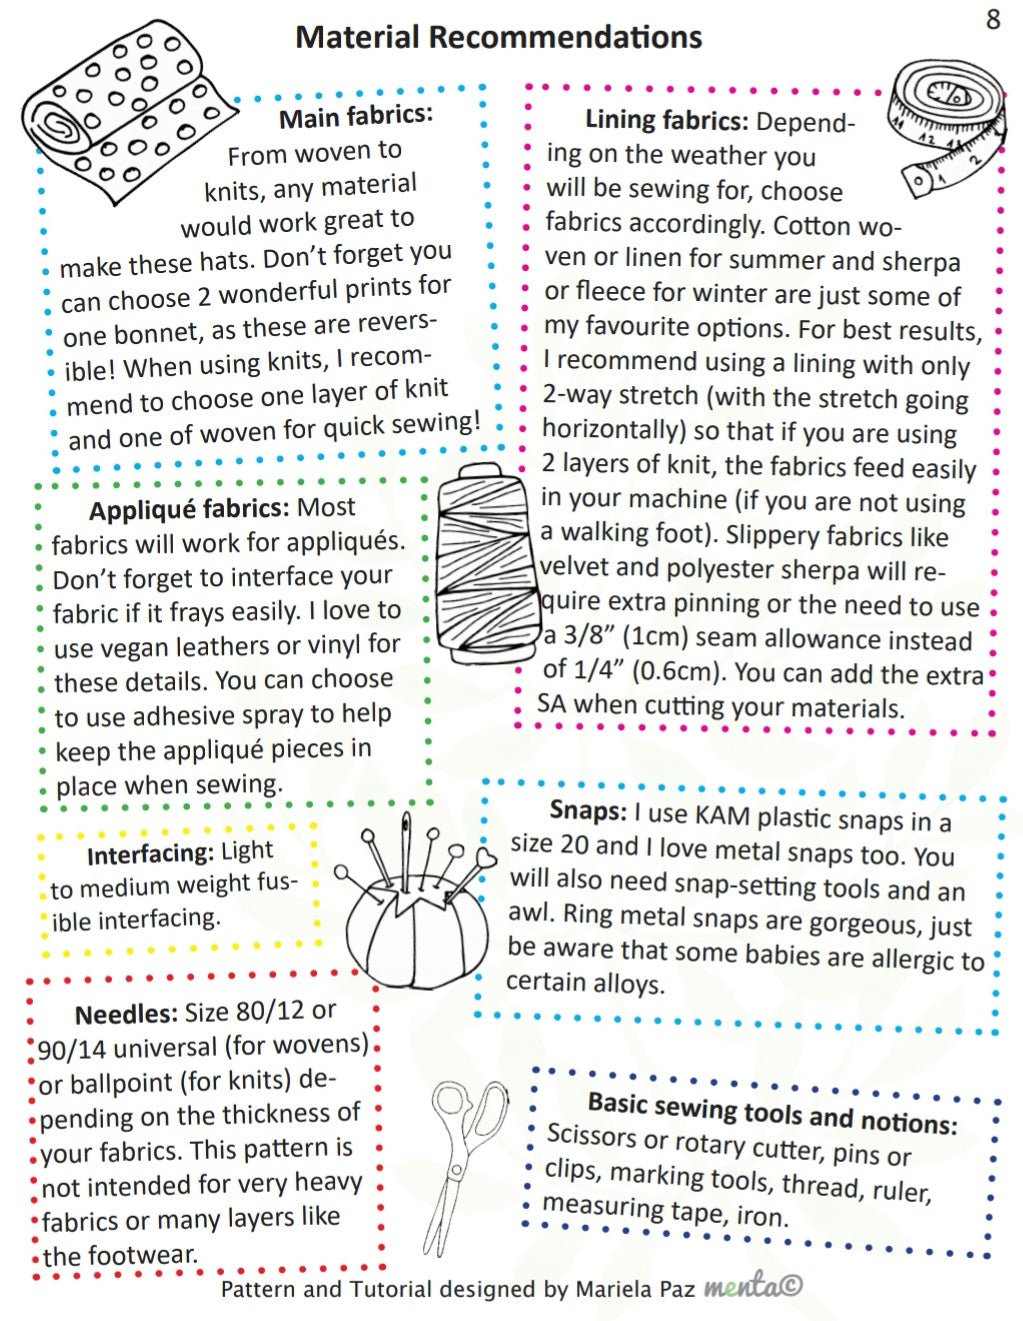 8
Material Recommendations
Main fabrics:
From woven to
knits, any material
would work great to
make these hats. Don't forget you
can choose 2 wonderful prints for
one bonnet, as these are revers-
ible! When using knits, I recom-
mend to choose one layer of knit
and one of woven for quick sewing!
Lining fabrics: Depend-
ing on the weather you
will be sewing for, choose
fabrics accordingly. Cotton wo-
ven or linen for summer and sherpa
or fleece for winter are just some of
my favourite options. For best results,
I recommend using a lining with only
2-way stretch (with the stretch going
horizontally) so that if you are using
2 layers of knit, the fabrics feed easily
in your machine (if you are not using
a walking foot). Slippery fabrics like
velvet and polyester sherpa will re-
quire extra pinning or the need to use
a 3/8” (1cm) seam allowance instead
of 1/4” (0.6cm). You can add the extra
SA when cutting your materials.
Appliqué fabrics: Most
fabrics will work for appliqués.
Don't forget to interface your
fabric if it frays easily. I love to
use vegan leathers or vinyl for
these details. You can choose
to use adhesive spray to help
keep the appliqué pieces in
place when sewing.
Snaps: I use KAM plastic snaps in a
size 20 and I love metal snaps too. You
will also need snap-setting tools and an
awl. Ring metal snaps are gorgeous, just
be aware that some babies are allergic to
certain alloys.
Interfacing: Light
to medium weight fus-
ible interfacing.
Needles: Size 80/12 or
90/14 universal (for wovens)
or ballpoint (for knits) de-
pending on the thickness of
your fabrics. This pattern is
not intended for very heavy
fabrics or many layers like
the footwear.
Basic sewing tools and notions:
Scissors or rotary cutter, pins or
clips, marking tools, thread, ruler,
measuring tape, iron.
11 12 13
1 2
Pattern and Tutorial designed by Mariela Paz menta©